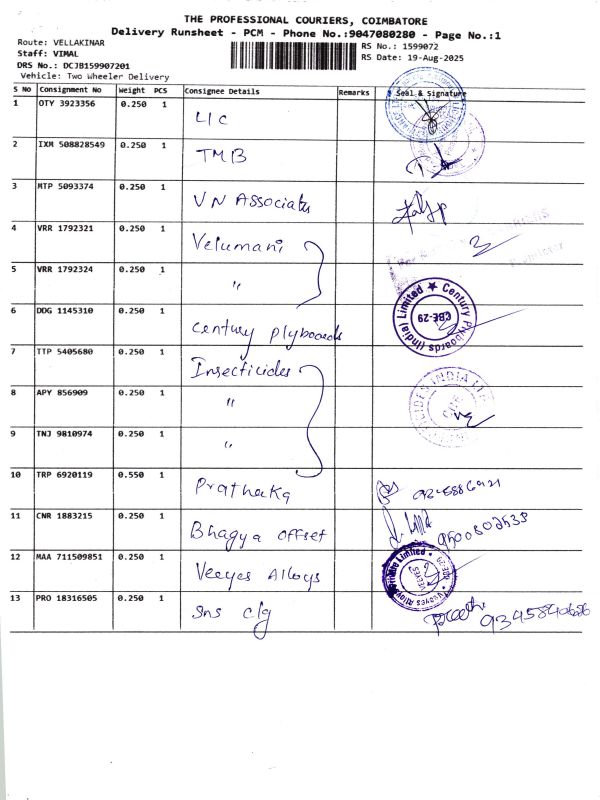 THE PROFESSIONAL COURIERS, COIMBATORE
Delivery Runsheet - PCM - Phone No.:9047080280 - Page No.:1
Route: VELLAKINAR
RS No.: 1599072
Staff: VIMAL
RS Date: 19-Aug-2025
DRS No.: DCJB159907201
Vehicle: Two Wheeler Delivery
S No Consignment No Weight PCS Consignee Details Remarks Seal & Signature
1 OTY 3923356 0.250 1 LIC
2 IXM 508828549 0.250 1 TMB
3 MTP 5093374 0.250 1 VN Associates
4 VRR 1792321 0.250 1 Velumani
5 VRR 1792324 0.250 1 "
6 DDG 1145310 0.250 1 Century plyboards
Century Plyboards (India) Limited ★
CBE-29
7 TTP 5405680 0.250 1 Insecticides
8 APY 856909 0.250 1 "
INDIA
9 TNJ 9810974 0.250 1 "
10 TRP 6920119 0.550 1 Prathaka
11 CNR 1883215 0.250 1 Bhagya offset 9500802533
12 MAA 711509851 0.250 1 Veeyes Alloys
Veeyes Alloys Private Limited
VEEYES
13 PRO 18316505 0.250 1 Sns clg 9345840686